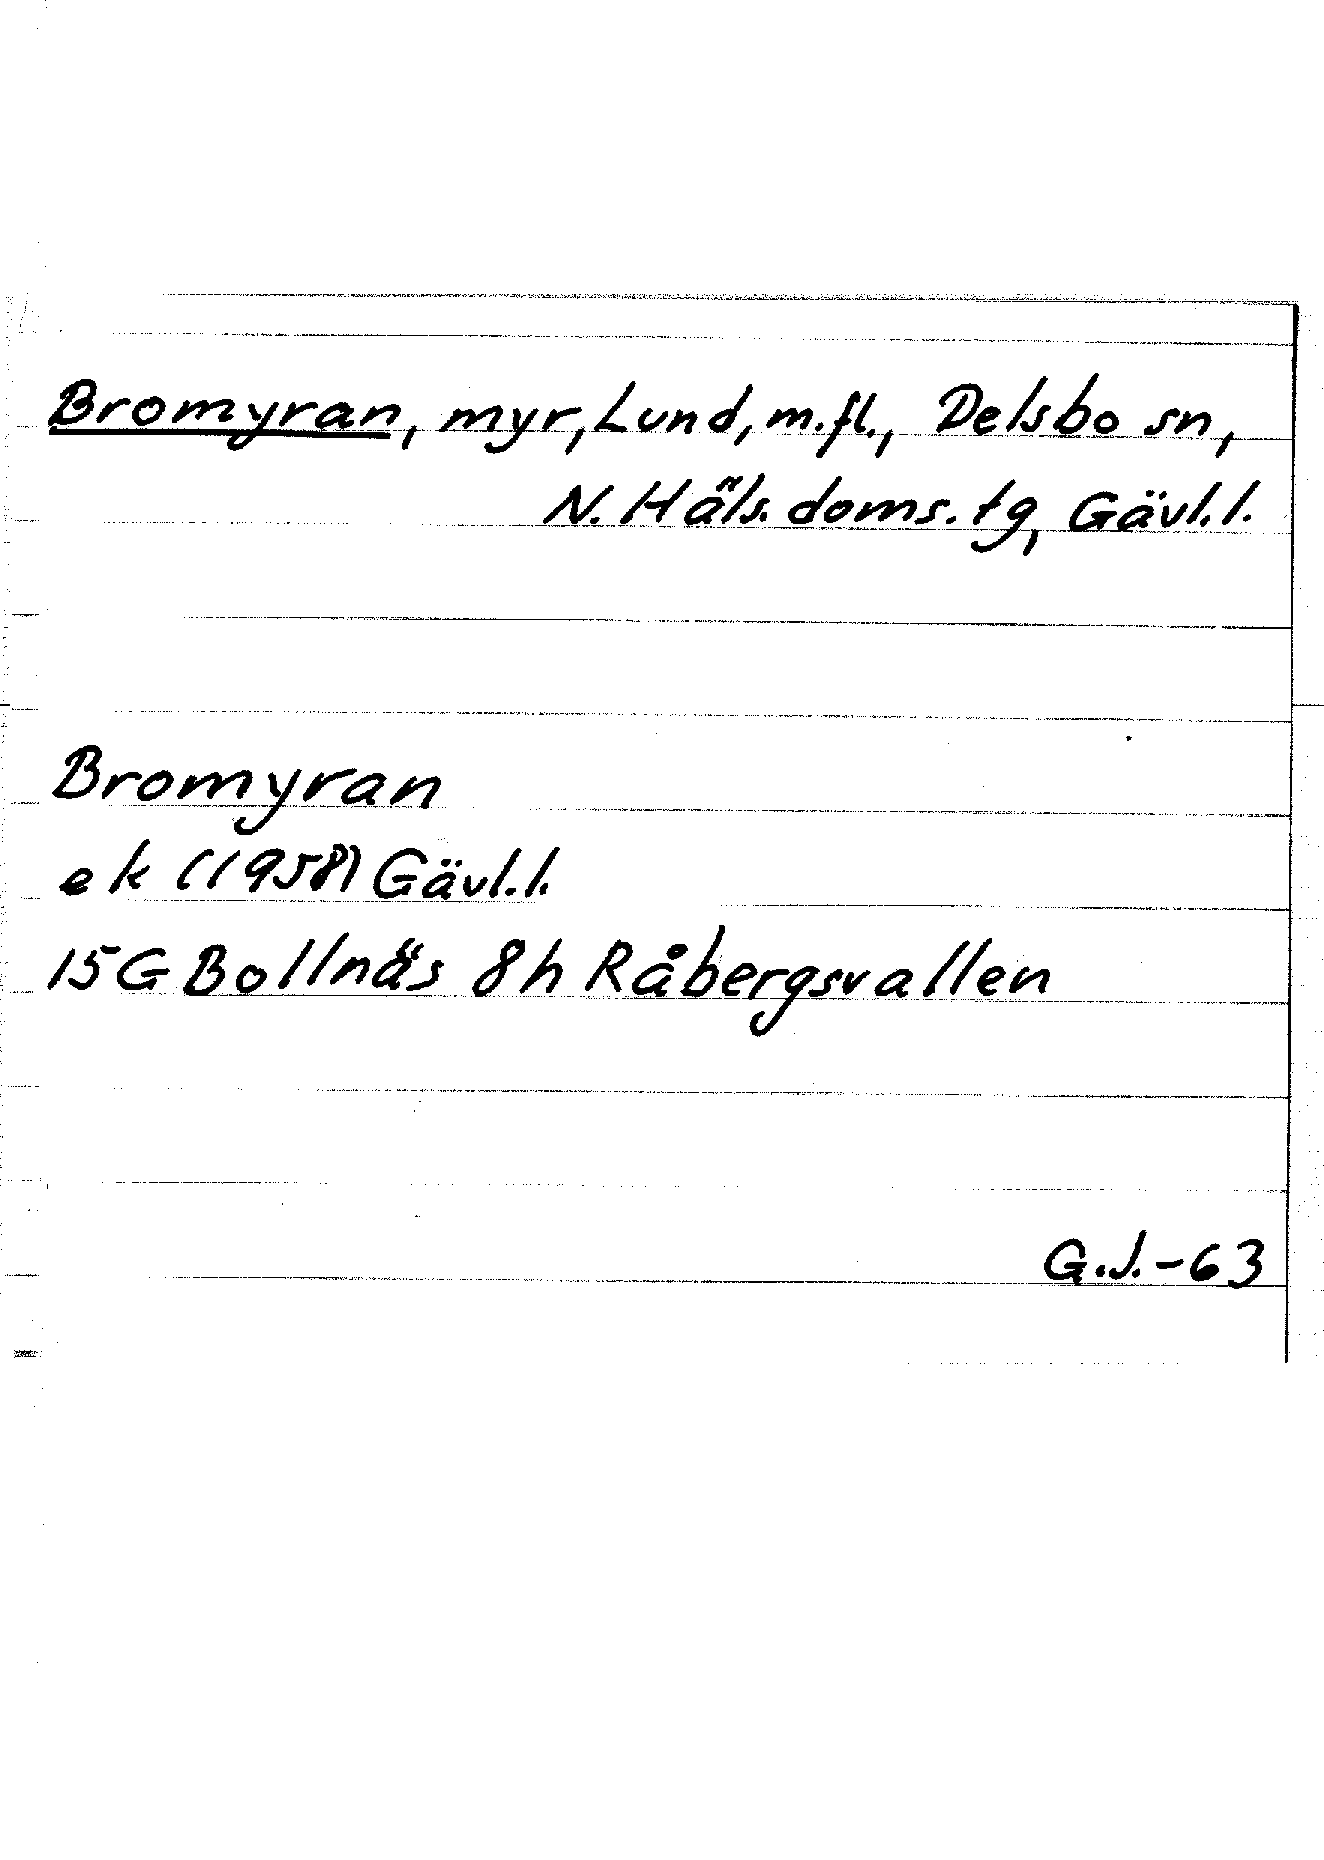 Bromyran, myr, Lund, m.fl., Delsbo sn,
N. Häls. doms. tg, Gävl. l.
Bromyran
ek (1958) Gävl. l.
15G Bollnäs 8h Råbergsvallen
G.J.-63